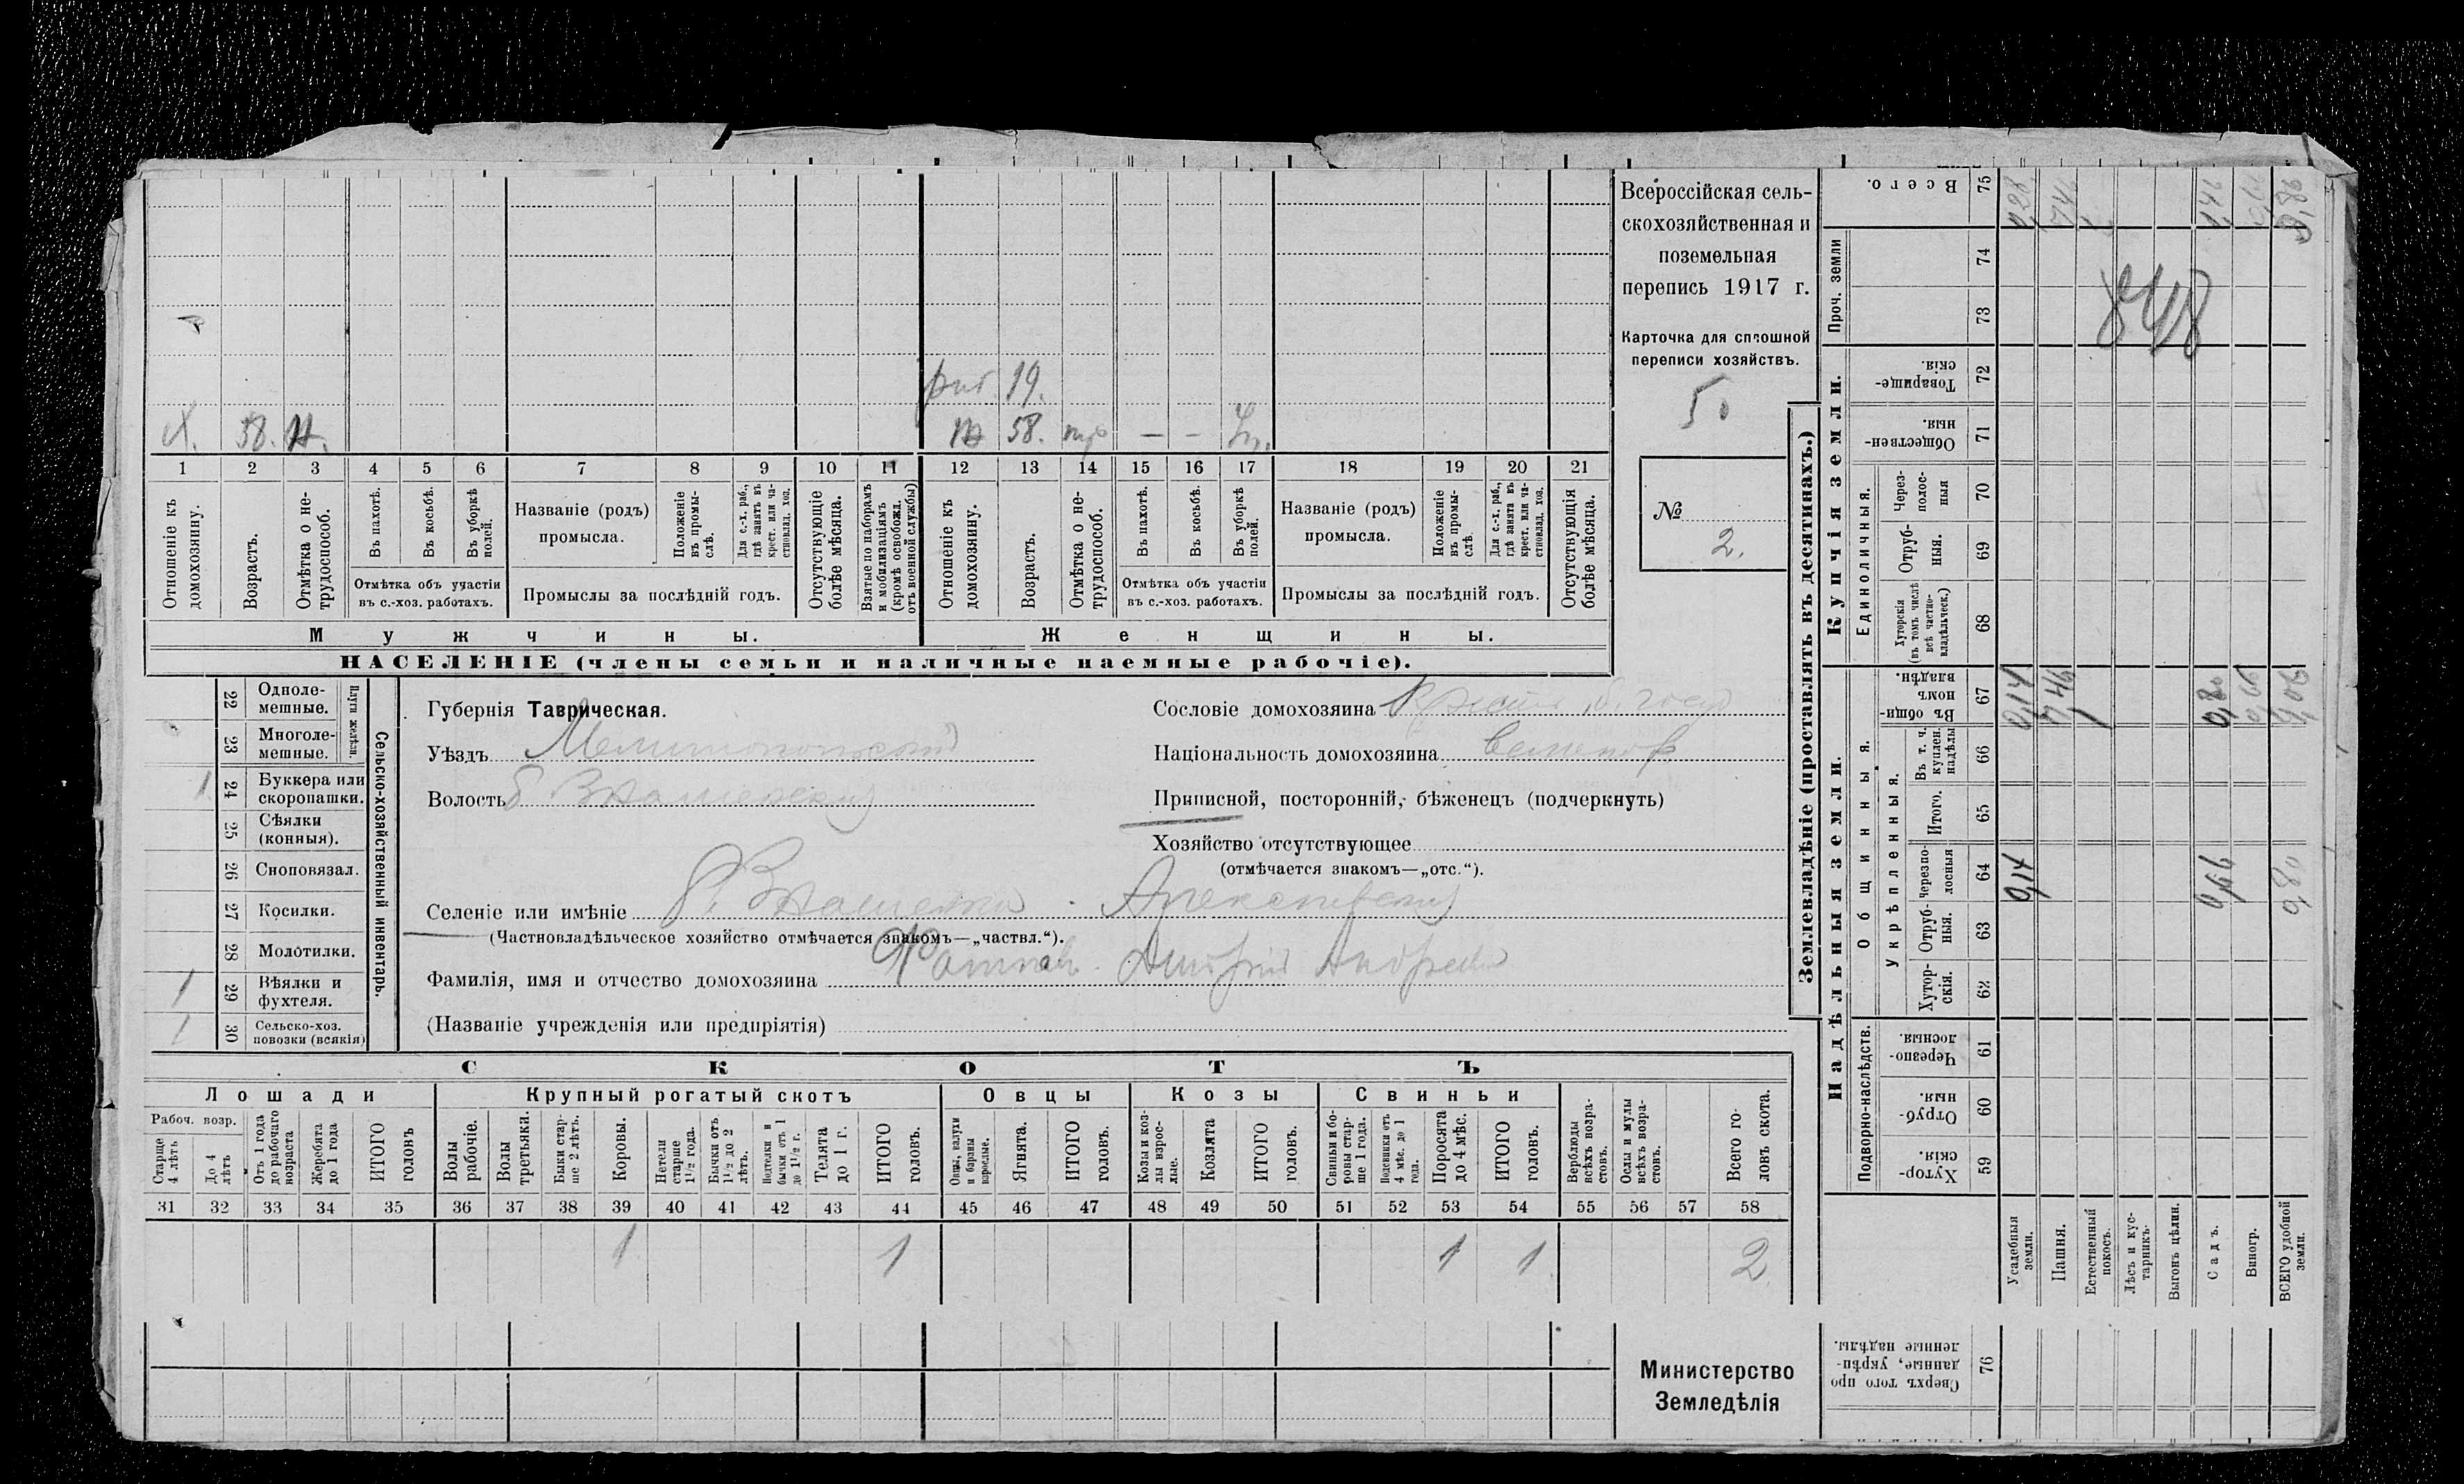 Всероссійская сель-
скохозяйственная и
поземельная
перепись 1917 г.
Карточка для сплошной
переписи хозяйствъ.
50
№
2.
рит. 19.
Х. 58. Н.
58.
1 2 3 4 5 6 7 8 9 10 11 12 13 14 15 16 17 18 19 20 21
Отношеніе къ домохозяину.
Возрастъ.
Отмѣтка о не-
трудоспособ.
Въ пахотѣ.
Въ косьбѣ.
Въ уборкѣ
полей.
Отмѣтка объ участіи
въ с.-хоз. работахъ.
Названіе (родъ)
промысла.
Положеніе
въ промы-
слѣ.
Для с.-х. раб.,
гдѣ занятъ въ
крест. или ча-
стновлад. хоз.
Промыслы за послѣдній годъ.
Отсутствующіе
болѣе мѣсяца.
Взятые по наборамъ
и мобилизаціямъ
(кромѣ освобожд.
отъ военной службы)
Отношеніе къ
домохозяину.
Возрастъ.
Отмѣтка о не-
трудоспособ.
Въ пахотѣ.
Въ косьбѣ.
Въ уборкѣ
полей.
Отмѣтка объ участіи
въ с.-хоз. работахъ.
Названіе (родъ)
промысла.
Положеніе
въ промы-
слѣ.
Для с.-х. раб.,
гдѣ занята въ
крест. или ча-
стновлад. хоз.
Промыслы за послѣдній годъ.
Отсутствующія
болѣе мѣсяца.
Мужчины.
Женщины.
НАСЕЛЕНІЕ (члены семьи и наличные наемные рабочіе).
Сельско-хозяйственный инвентарь.
Плуги желѣзн.
22 Одноле-
мешные.
23 Многоле-
мешные.
1 24 Буккера или
скоропашки.
25 Сѣялки
(конныя).
26 Сноповязал.
27 Косилки.
28 Молотилки.
1 29 Вѣялки и
фухтеля.
1 30 Сельско-хоз.
повозки (всякія)
Губернія Таврическая.
Уѣздъ Мелитопольскій
Волость
Селеніе или имѣніе
(Частновладѣльческое хозяйство отмѣчается знакомъ—„частвл.“).
Фамилія, имя и отчество домохозяина
(Названіе учрежденія или предпріятія)
Сословіе домохозяина
Національность домохозяина
Приписной, посторонній, бѣженецъ (подчеркнуть)
Хозяйство отсутствующее
(отмѣчается знакомъ—„отс.“).
СКОТЪ
Лошади
Крупный рогатый скотъ
Овцы
Козы
Свиньи
Рабоч. возр.
Старше
4 лѣтъ
До 4
лѣтъ
Отъ 1 года
до рабочаго
возраста
Жеребята
до 1 года
ИТОГО
головъ
Волы
рабочіе.
Волы
третьяки.
Быки стар-
ше 2 лѣтъ.
Коровы.
Нетели
старше
1½ года.
Бычки отъ
1½ до 2
лѣтъ.
Подтелки и
бычки отъ 1
до 1½ г.
Телята
до 1 г.
ИТОГО
головъ.
Овцы, валухи
и бараны
взрослые.
Ягнята.
ИТОГО
головъ.
Козы и коз-
лы взрос-
лые.
Козлята
ИТОГО
головъ.
Свиньи и бо-
ровы стар-
ше 1 года.
Подсвинки отъ
4 мѣс. до 1
года.
Поросята
до 4 мѣс.
ИТОГО
головъ.
Верблюды
всѣхъ возра-
стовъ.
Ослы и мулы
всѣхъ возра-
стовъ.
Всего го-
ловъ скота.
31 32 33 34 35 36 37 38 39 40 41 42 43 44 45 46 47 48 49 50 51 52 53 54 55 56 57 58
1 1 1 1 2
Министерство
Земледѣлія
Землевладѣніе (проставлять въ десятинахъ.)
Купчія земли.
Надѣльныя земли.
Всего. 75
Проч. земли
74
73
Товарище-
скія. 72
Обществен-
ныя. 71
Единоличныя.
Через-
полос-
ныя 70
Отруб-
ныя. 69
Хуторскія
(въ томъ числѣ
всѣ частно-
владѣльческ.) 68
Общинныя.
Въ общи-
номъ
владѣн. 67
Укрѣпленныя.
Въ т. ч.
куплен.
надѣлы 66
Итого. 65
Черезпо-
лосныя 64
Отруб-
ныя. 63
Хутор-
скія. 62
Подворно-наслѣдств.
Черезпо-
лосныя. 61
Отруб-
ныя. 60
Хутор-
скія. 59
848
0,28
0,14
0,14
0,80
0,66
0,80
Усадебныя
земли.
Пашня.
Естественный
покосъ.
Лѣсъ и кус-
тарникъ.
Выгонъ цѣлин.
Садъ.
Виногр.
ВСЕГО удобной
земли.
Сверхъ того про
данные, укрѣп-
ленные надѣлы. 76